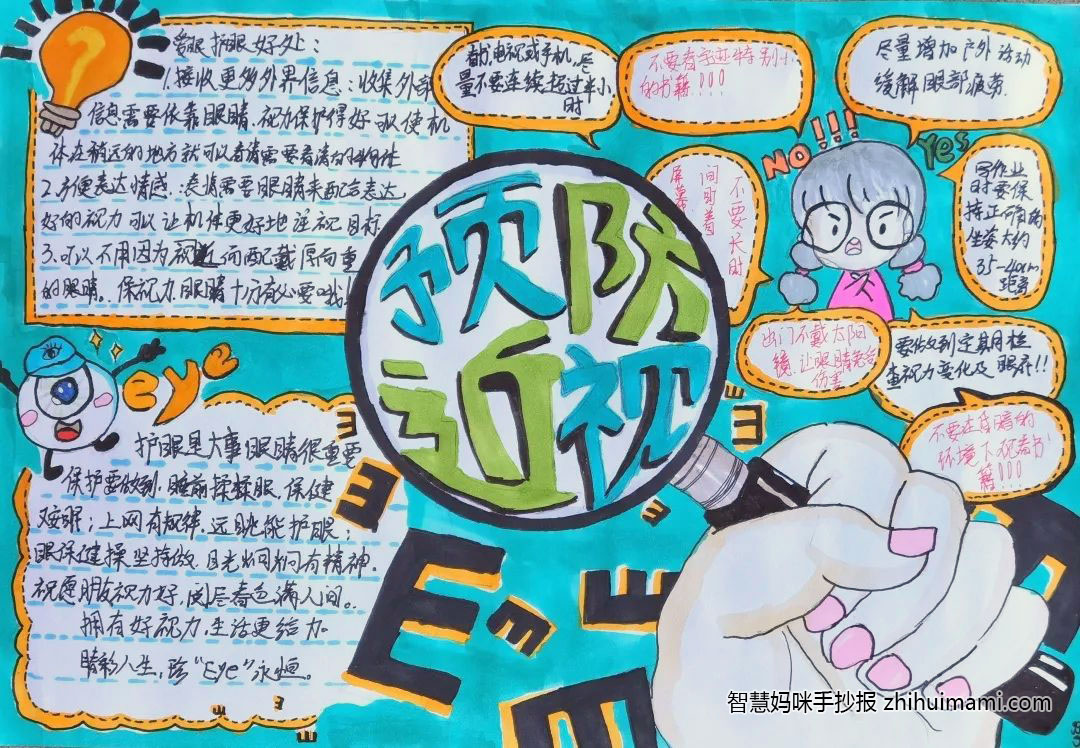 爱眼护眼好处：
1.接收更多外界信息：收集外部
信息需要依靠眼睛.视力保护得好可以使机
体在稍远的地方就可以看清需要看清的物件
2.方便表达情感：表情需要眼睛来配合表达
好的视力可以让机体更好地注视目标
3.可以不用因为视近而配戴厚而重
的眼睛。保视力眼睛十分有必要哦!!
eye
护眼是大事眼睛很重要
保护要做到.睡前揉揉眼.保健
又安眠；上网有规律.远目光能护眼；
眼保健操坚持做.目光炯炯有精神.
祝愿朋友视力好,阅尽春色满人间。
拥有好视力.生活更给力.
睛彩人生,珍“Eye”永恒。
预防
近视
看电视或手机,尽
量不要连续超过半小
时
不要看字迹特别小
的书籍!!!
尽量增加户外活动
缓解眼部疲劳
NO!!!
Yes
不要长时
间盯着
屏幕
写作业
时要保
持正确的
坐姿大约
35-40cm
距离
出门不戴太阳
镜.让眼睛免受
伤害
要做到定期检
查视力变化及眼疗!!
不要在昏暗的
环境下观看书
籍!!!
E
E
E
E
E
E
E
E
智慧妈咪手抄报 zhihuimami.com